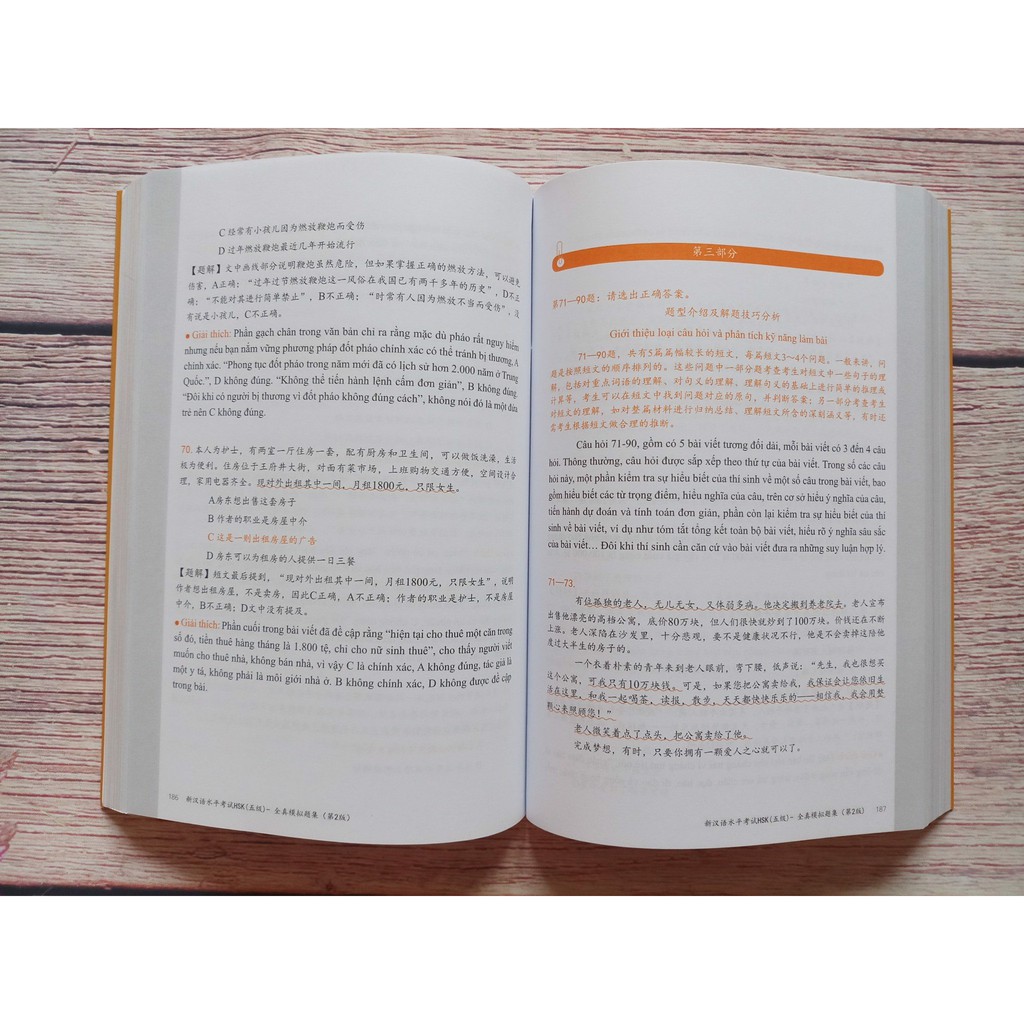 C 经常有小孩儿因为燃放鞭炮而受伤
D 过年燃放鞭炮最近几年开始流行
【题解】文中画线部分说明鞭炮虽然危险，但如果掌握正确的燃放方法，可以避免
伤害，A正确；“过年过节燃放鞭炮这一风俗在我国已有两千多年的历史”，D不正
确；“不能对其进行简单禁止”，B不正确；“时常有人因为燃放不当而受伤”，没
有说是小孩儿，C不正确。
● Giải thích: Phần gạch chân trong văn bản chỉ ra rằng mặc dù pháo rất nguy hiểm
nhưng nếu bạn nắm vững phương pháp đốt pháo chính xác có thể tránh bị thương, A
chính xác. “Phong tục đốt pháo trong năm mới đã có lịch sử hơn 2.000 năm ở Trung
Quốc.”, D không đúng. “Không thể tiến hành lệnh cấm đơn giản”, B không đúng.
“Đôi khi có người bị thương vì đốt pháo không đúng cách”, không nói đó là một đứa
trẻ nên C không đúng.
70. 本人为护士，有两室一厅住房一套，配有厨房和卫生间，可以做饭洗澡，生活
极为便利。住房位于王府井大街，对面有菜市场，上班购物交通方便，空间设计合
理，家用电器齐全。现对外出租其中一间，月租1800元，只限女生。
A 房东想出售这套房子
B 作者的职业是房屋中介
C 这是一则出租房屋的广告
D 房东可以为租房的人提供一日三餐
【题解】短文最后提到，“现对外出租其中一间，月租1800元，只限女生”，说明
作者想出租房屋，不是卖房，因此C正确，A不正确；作者的职业是护士，不是房屋
中介，B不正确；D文中没有提及。
● Giải thích: Phần cuối trong bài viết đã đề cập rằng “hiện tại cho thuê một căn trong
số đó, tiền thuê hàng tháng là 1.800 tệ, chỉ cho nữ sinh thuê”, cho thấy người viết
muốn cho thuê nhà, không bán nhà, vì vậy C là chính xác, A không đúng, tác giả là
một y tá, không phải là môi giới nhà ở. B không chính xác, D không được đề cập
trong bài.
186 新汉语水平考试HSK(五级)- 全真模拟题集（第2版）
第三部分
第71—90题：请选出正确答案。
题型介绍及解题技巧分析
Giới thiệu loại câu hỏi và phân tích kỹ năng làm bài
71—90题，共有5篇篇幅较长的短文，每篇短文3~4个问题。一般来讲，问
题是按照短文的顺序排列的。这些问题中一部分题考查考生对短文中一些句子的理
解，包括对重点词语的理解、对句义的理解、理解句义的基础上进行简单的推理或
计算等，考生可以在短文中找到问题对应的原句，并判断答案；另一部分考查考生
对短文的理解，如对整篇材料进行归纳总结、理解短文所含的深刻涵义等，有时还
需考生根据短文做合理的推断。
Câu hỏi 71-90, gồm có 5 bài viết tương đối dài, mỗi bài viết có 3 đến 4 câu
hỏi. Thông thường, câu hỏi được sắp xếp theo thứ tự của bài viết. Trong số các câu
hỏi này, một phần kiểm tra sự hiểu biết của thí sinh về một số câu trong bài viết, bao
gồm hiểu biết các từ trọng điểm, hiểu nghĩa của câu, trên cơ sở hiểu ý nghĩa của câu,
tiến hành dự đoán và tính toán đơn giản, phần còn lại kiểm tra sự hiểu biết của thí
sinh về bài viết, ví dụ như tóm tắt tổng kết toàn bộ bài viết, hiểu rõ ý nghĩa sâu sắc
của bài viết… Đôi khi thí sinh cần căn cứ vào bài viết đưa ra những suy luận hợp lý.
71—73.
有位孤独的老人，无儿无女，又体弱多病。他决定搬到养老院去。老人宣布
出售他漂亮的高档公寓，底价80万块，但人们很快就炒到了100万块。价钱还在不断
上涨。老人深陷在沙发里，十分悲观，要不是健康状况不行，他是不会卖掉这陪他
度过大半生的房子的。
一个衣着朴素的青年来到老人眼前，弯下腰，低声说：“先生，我也很想买
这个公寓，可我只有10万块钱。可是，如果您把公寓卖给我，我保证会让您依旧生
活在这里，和我一起喝茶，读报，散步，天天都快快乐乐的——相信我，我会用整
颗心来照顾您！”
老人微笑着点了点头，把公寓卖给了他。
完成梦想，有时，只要你拥有一颗爱人之心就可以了。
新汉语水平考试HSK(五级)- 全真模拟题集（第2版） 187